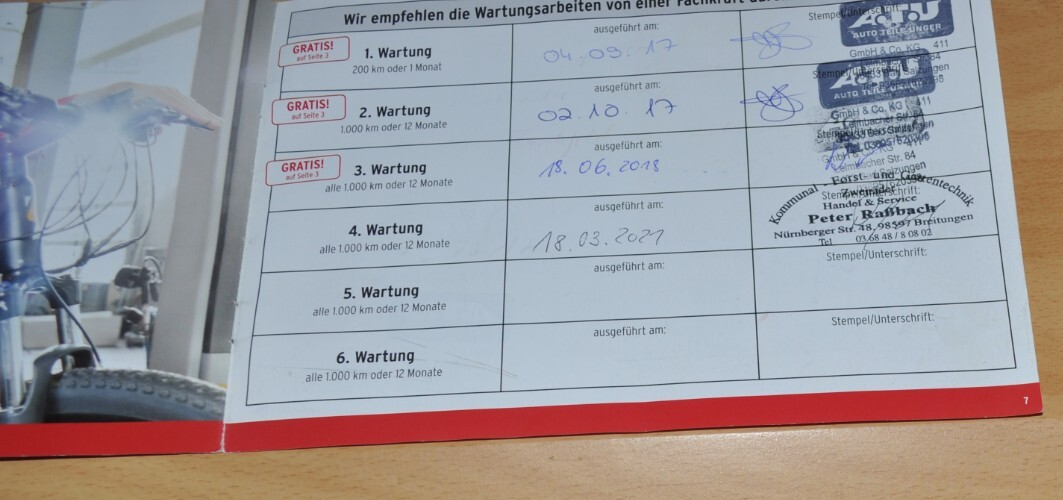 Wir empfehlen die Wartungsarbeiten von einer Fachkraft
GRATIS!
auf Seite 3
1. Wartung
200 km oder 1 Monat
ausgeführt am:
04.09.17
Stempel/Unterschrift:
A.T.U
AUTO TEILE UNGER
GmbH & Co. KG 411
GRATIS!
auf Seite 3
2. Wartung
1.000 km oder 12 Monate
ausgeführt am:
02.10.17
Stempel/Unterschrift:
A.T.U
AUTO TEILE UNGER
GmbH & Co. KG 411
Leimbacher Str. 84
GRATIS!
auf Seite 3
3. Wartung
alle 1.000 km oder 12 Monate
ausgeführt am:
18.06.2018
Stempel/Unterschrift:
411
Leimbacher Str. 84
4. Wartung
alle 1.000 km oder 12 Monate
ausgeführt am:
18.03.2021
Stempel/Unterschrift:
Kommunal - Forst- und Gartentechnik
Zweirad
Handel & Service
Peter Raßbach
Nürnberger Str. 48, 98597 Breitungen
Tel 03 68 48 / 8 08 02
5. Wartung
alle 1.000 km oder 12 Monate
ausgeführt am:
Stempel/Unterschrift:
6. Wartung
alle 1.000 km oder 12 Monate
ausgeführt am:
Stempel/Unterschrift:
7